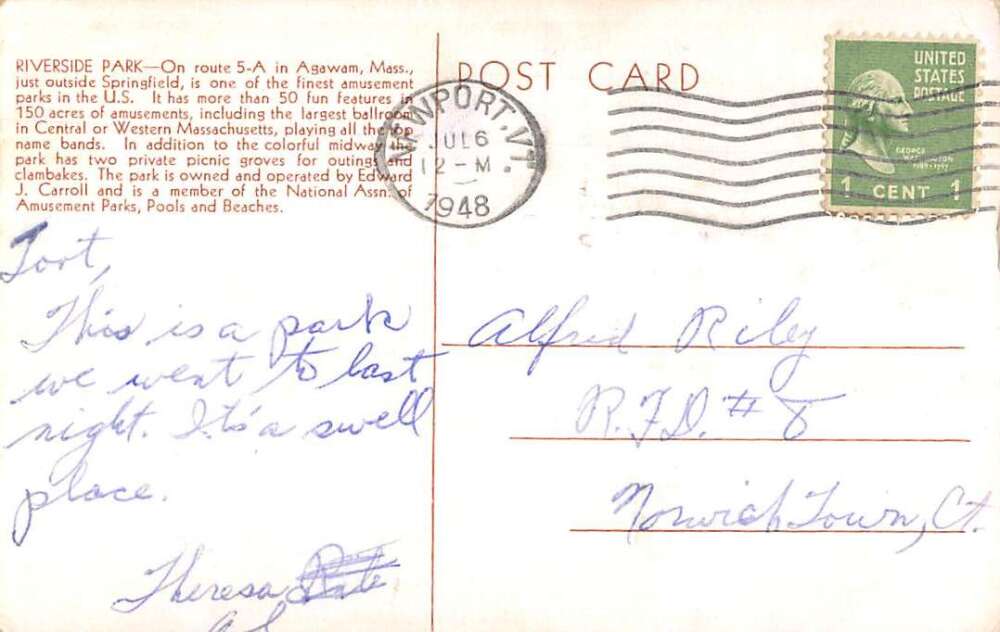 RIVERSIDE PARK—On route 5-A in Agawam, Mass.,
just outside Springfield, is one of the finest amusement
parks in the U.S. It has more than 50 fun features in
150 acres of amusements, including the largest ballroom
in Central or Western Massachusetts, playing all the top
name bands. In addition to the colorful midway the
park has two private picnic groves for outings and
clambakes. The park is owned and operated by Edward
J. Carroll and is a member of the National Assn. of
Amusement Parks, Pools and Beaches.
POST CARD
NEWPORT, VT.
JUL 6
12 - M
1948
UNITED
STATES
POSTAGE
GEORGE
WASHINGTON
1789-1797
1 CENT 1
This is a park
we went to last
night. It's a swell
place.
Theresa
Alfred Riley
R.F.D. # 8
Norwich Town, Ct.